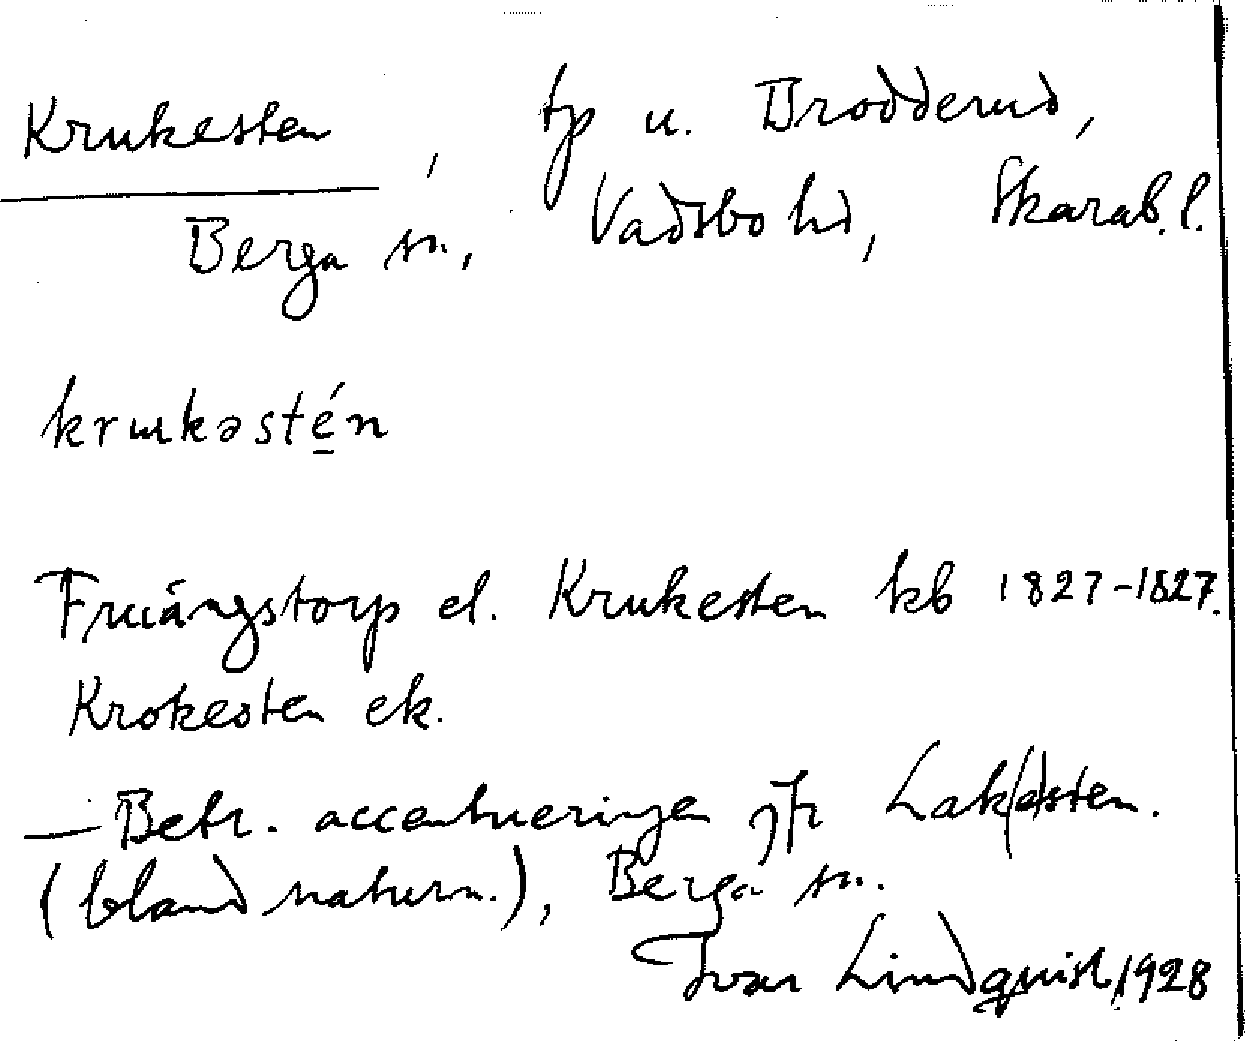 Krukesten, tp u. Brodderud,
Berga sn, Vadsbo hd, Skarab. l.
krukəstén
Fruängstorp el. Krukesten kb 1827-1827.
Krokesten ek.
— Betr. accentueringen jfr Lak(e)sten.
(bland naturn.), Berga sn.
Ivar Lindquist, 1928